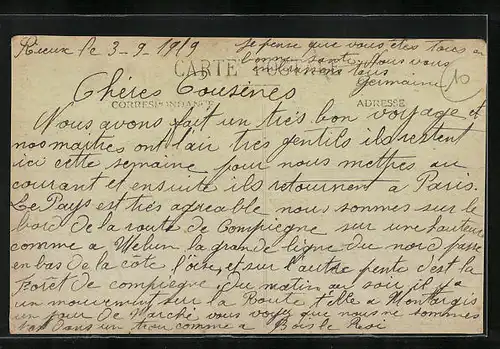 Rieux le 3-9-1919
je pense que vous êtes tous en
bonne santé Nous vous
embrassons tous
Germaine
10
CARTE POSTALE
CORRESPONDANCE
ADRESSE
Chères Cousines
Nous avons fait un très bon voyage et
nos maitres ont l'air très gentils ils restent
ici cette semaine pour nous mettres au
courant et ensuite ils retournent a Paris.
Le Pays est très agreable nous sommes sur le
bord de la route de Compiegne sur une hauteur
comme a Melun la grande ligne du nord passe
en bas de la côte l'oise, et sur l'autre pente c'est la
Foret de compiegne, du matin au soir il y a
un mouvement sur la Route telle a Montargis
un jour de Marché vous voyez que nous ne sommes
pas dans un trou comme a Bois le Roi